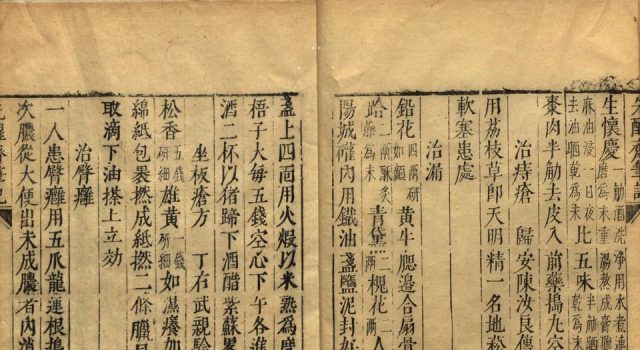 生懷慶
麻油浸一日夜去油晒乾為末 比五味
棗肉半觔去皮入 前藥搗九空
治痔瘡 歸安陳汝良傳
用荔枝草即天明精一名地
軟塞患處
治漏
鉛花 四兩研如麵 黃牛腮邊合扇骨
青黛二兩 槐花二
陽城礶內用鐵油盞鹽泥封好
盞上四面用火煆以米熟為度
梧子大每五錢空心下午各進
酒二杯以猪蹄下酒醋紫蘇累
坐板瘡方 丁右武親驗
松香五錢研細 雄黃一錢研細 如濕癢加
綿紙包裹撚成紙撚二條臘月
取滴下油搽上立効
治臂癰
一人患臂癰用五爪龍連根搗
次膿從大便出未成膿者內消